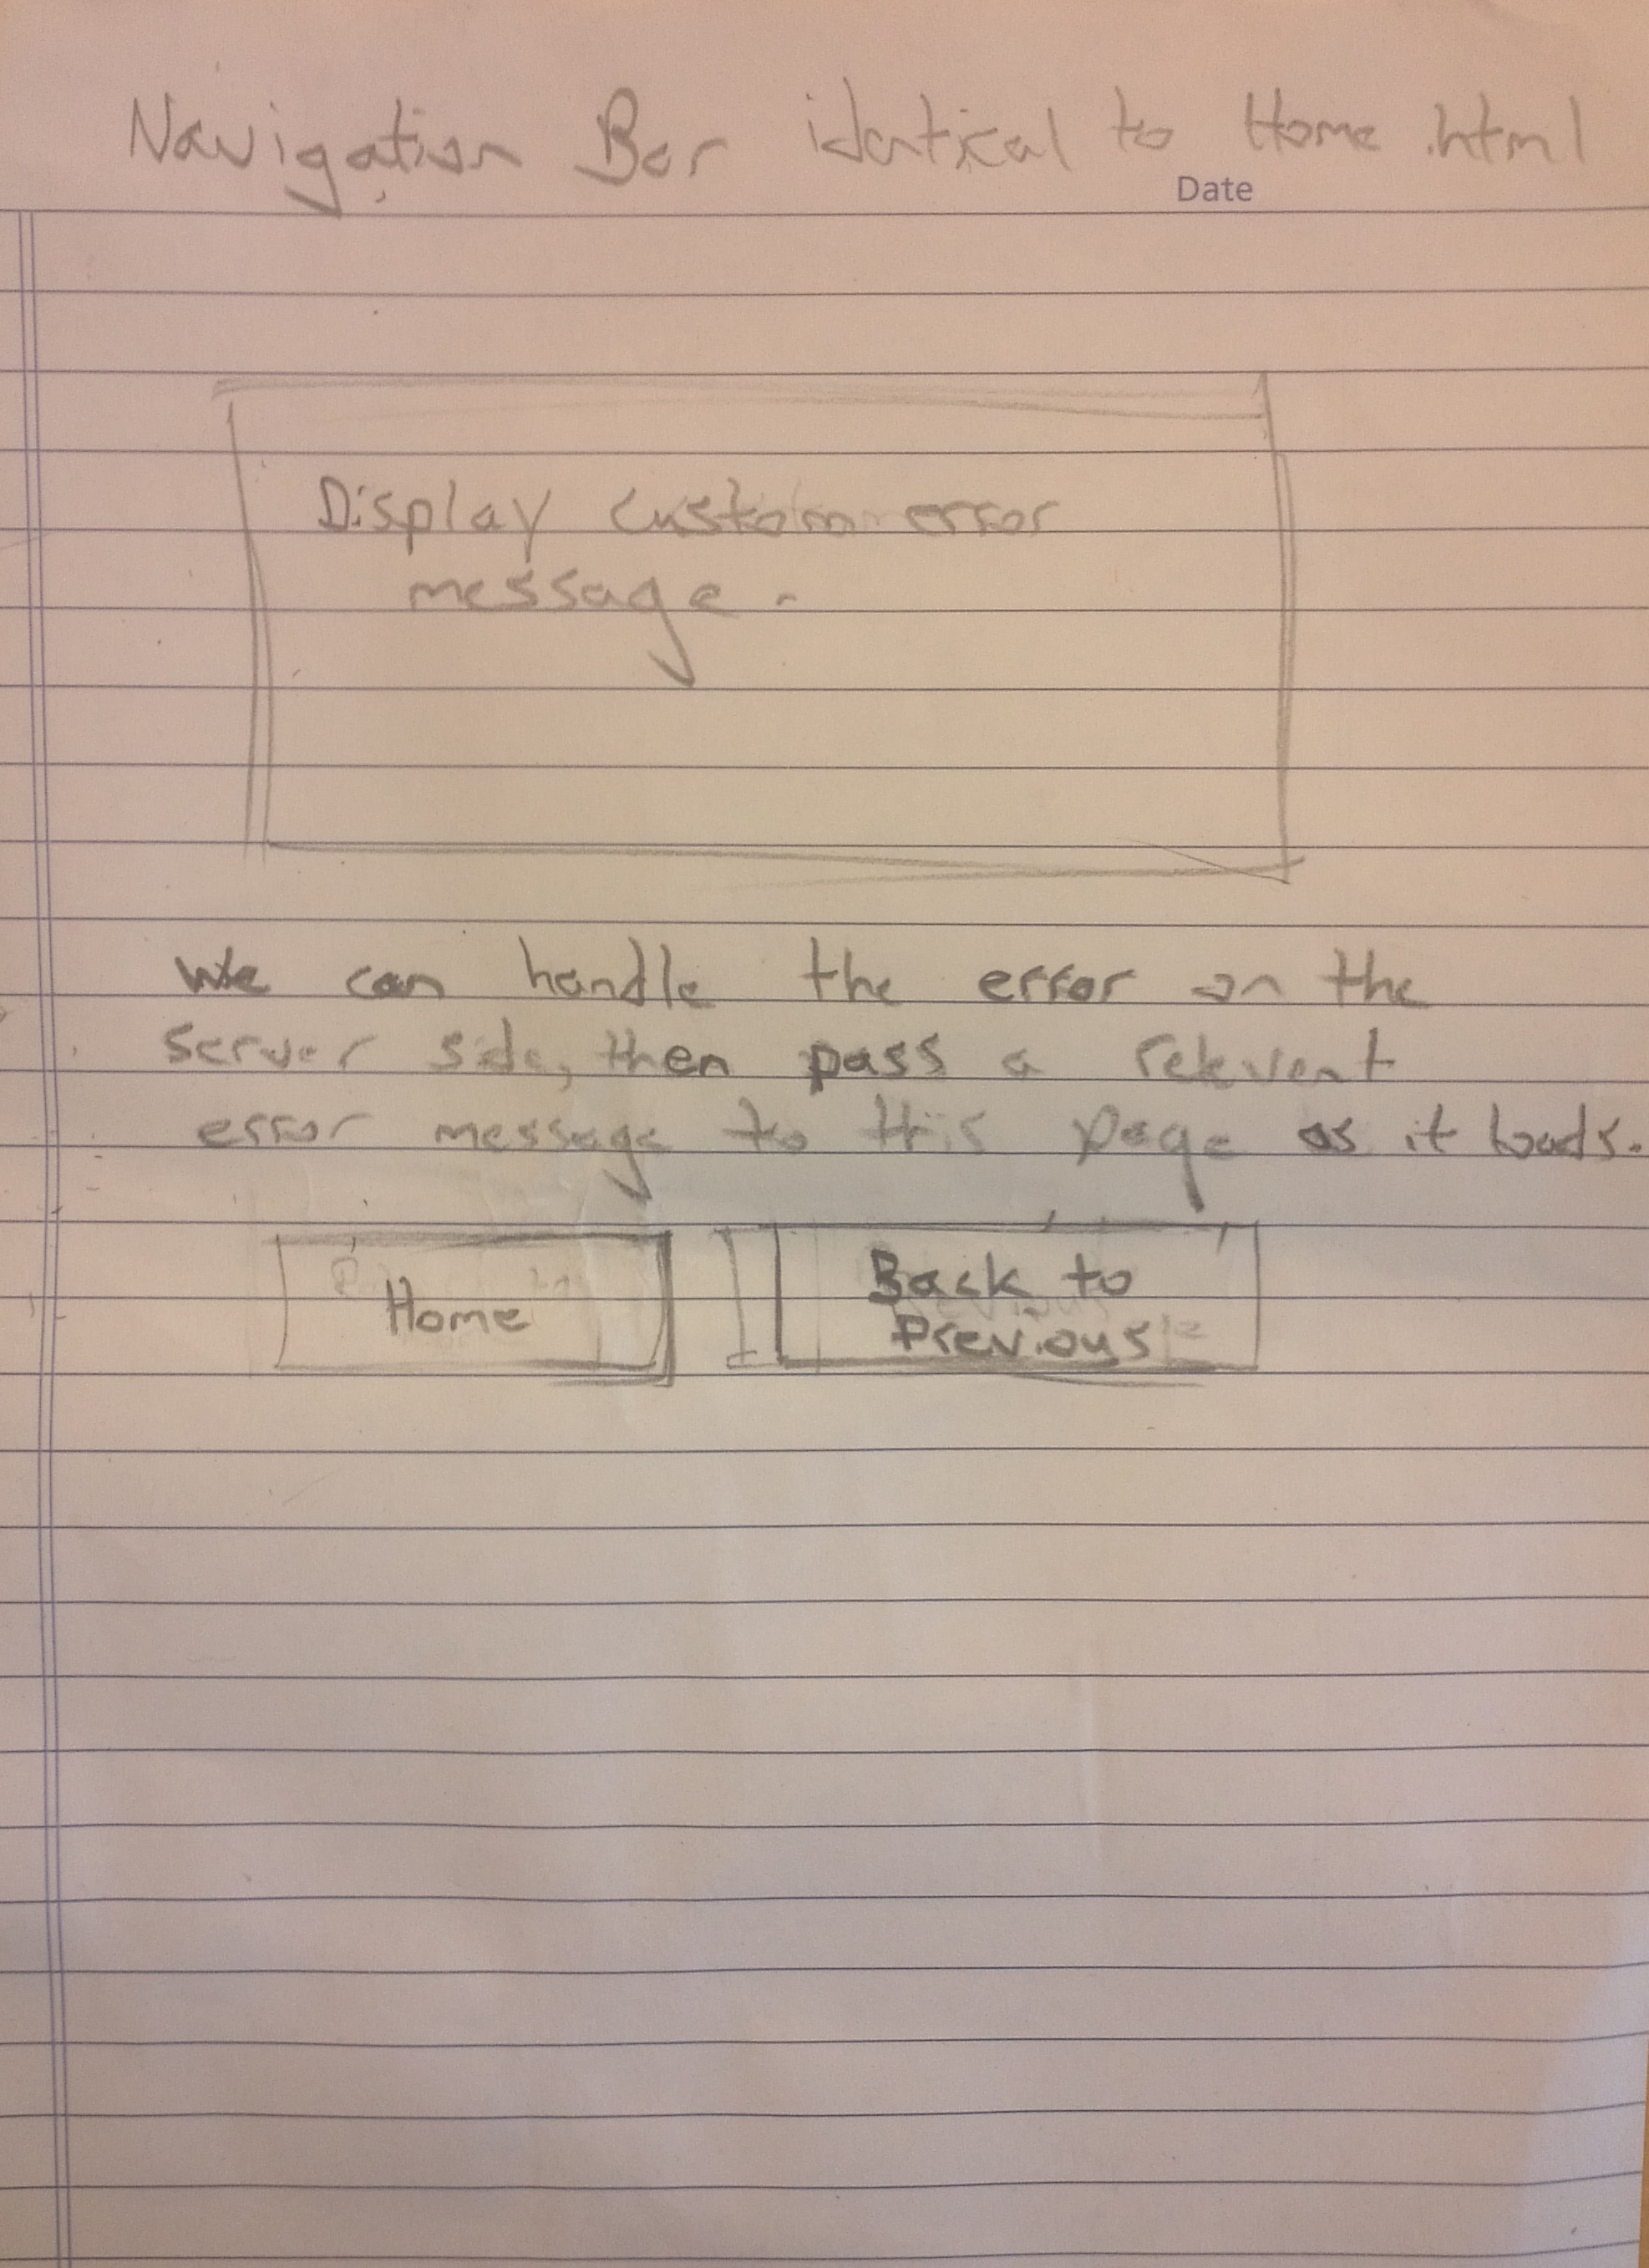 Navigation Bar identical to Home.html
Date
Display custom error
message.
We can handle the error on the
server side, then pass a relevent
error message to this page as it loads.
Home
Back to
Previous